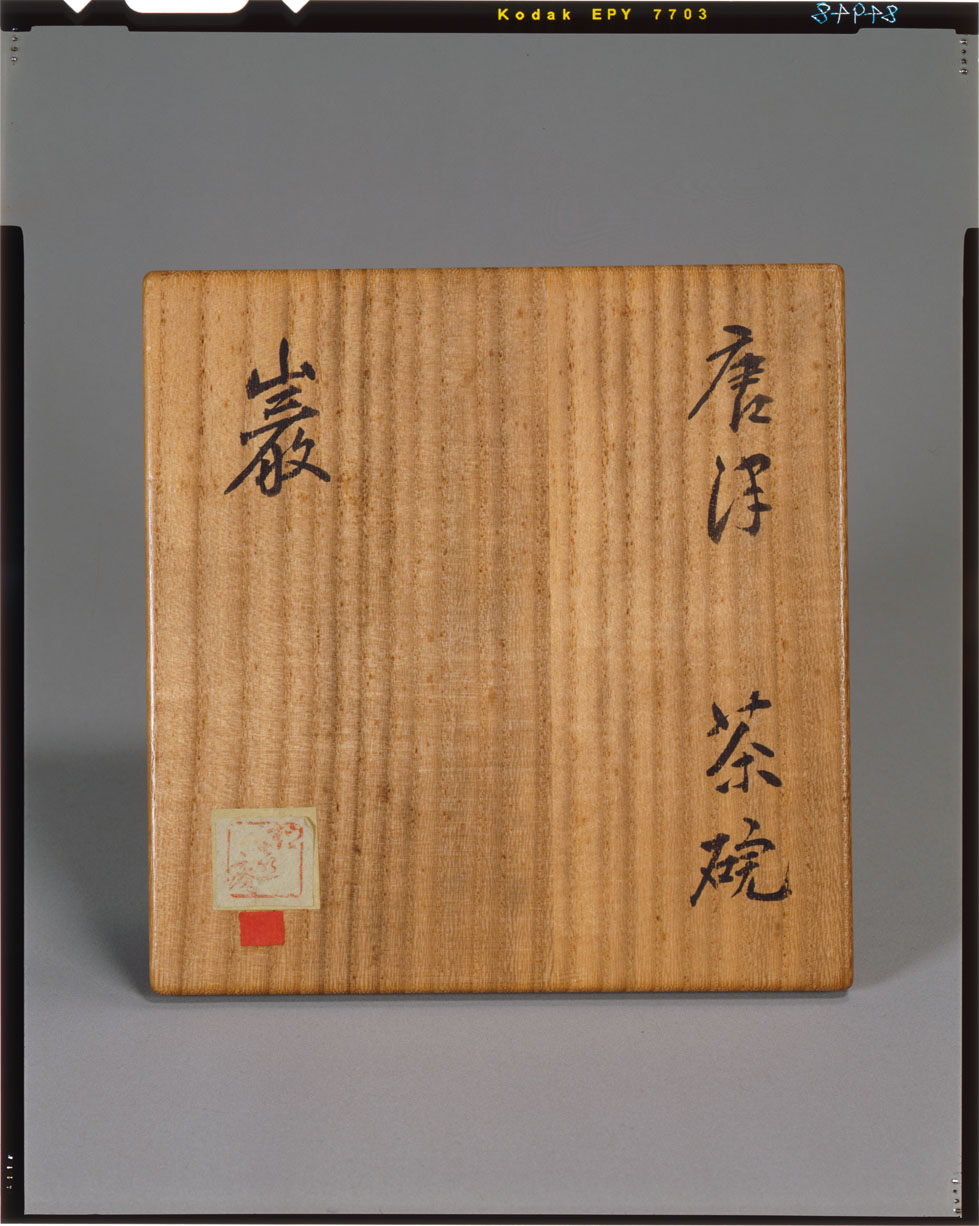 Kodak EPY 7703
84948
唐津 茶碗
巖